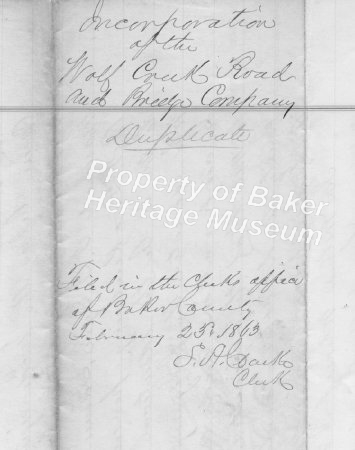 Incorporation
of the
Wolf Creek Road
and Bridge Company
Duplicate
Property of Baker
Heritage Museum
Filed in the Clerks office
of Baker County
February 25. 1863
Clerk